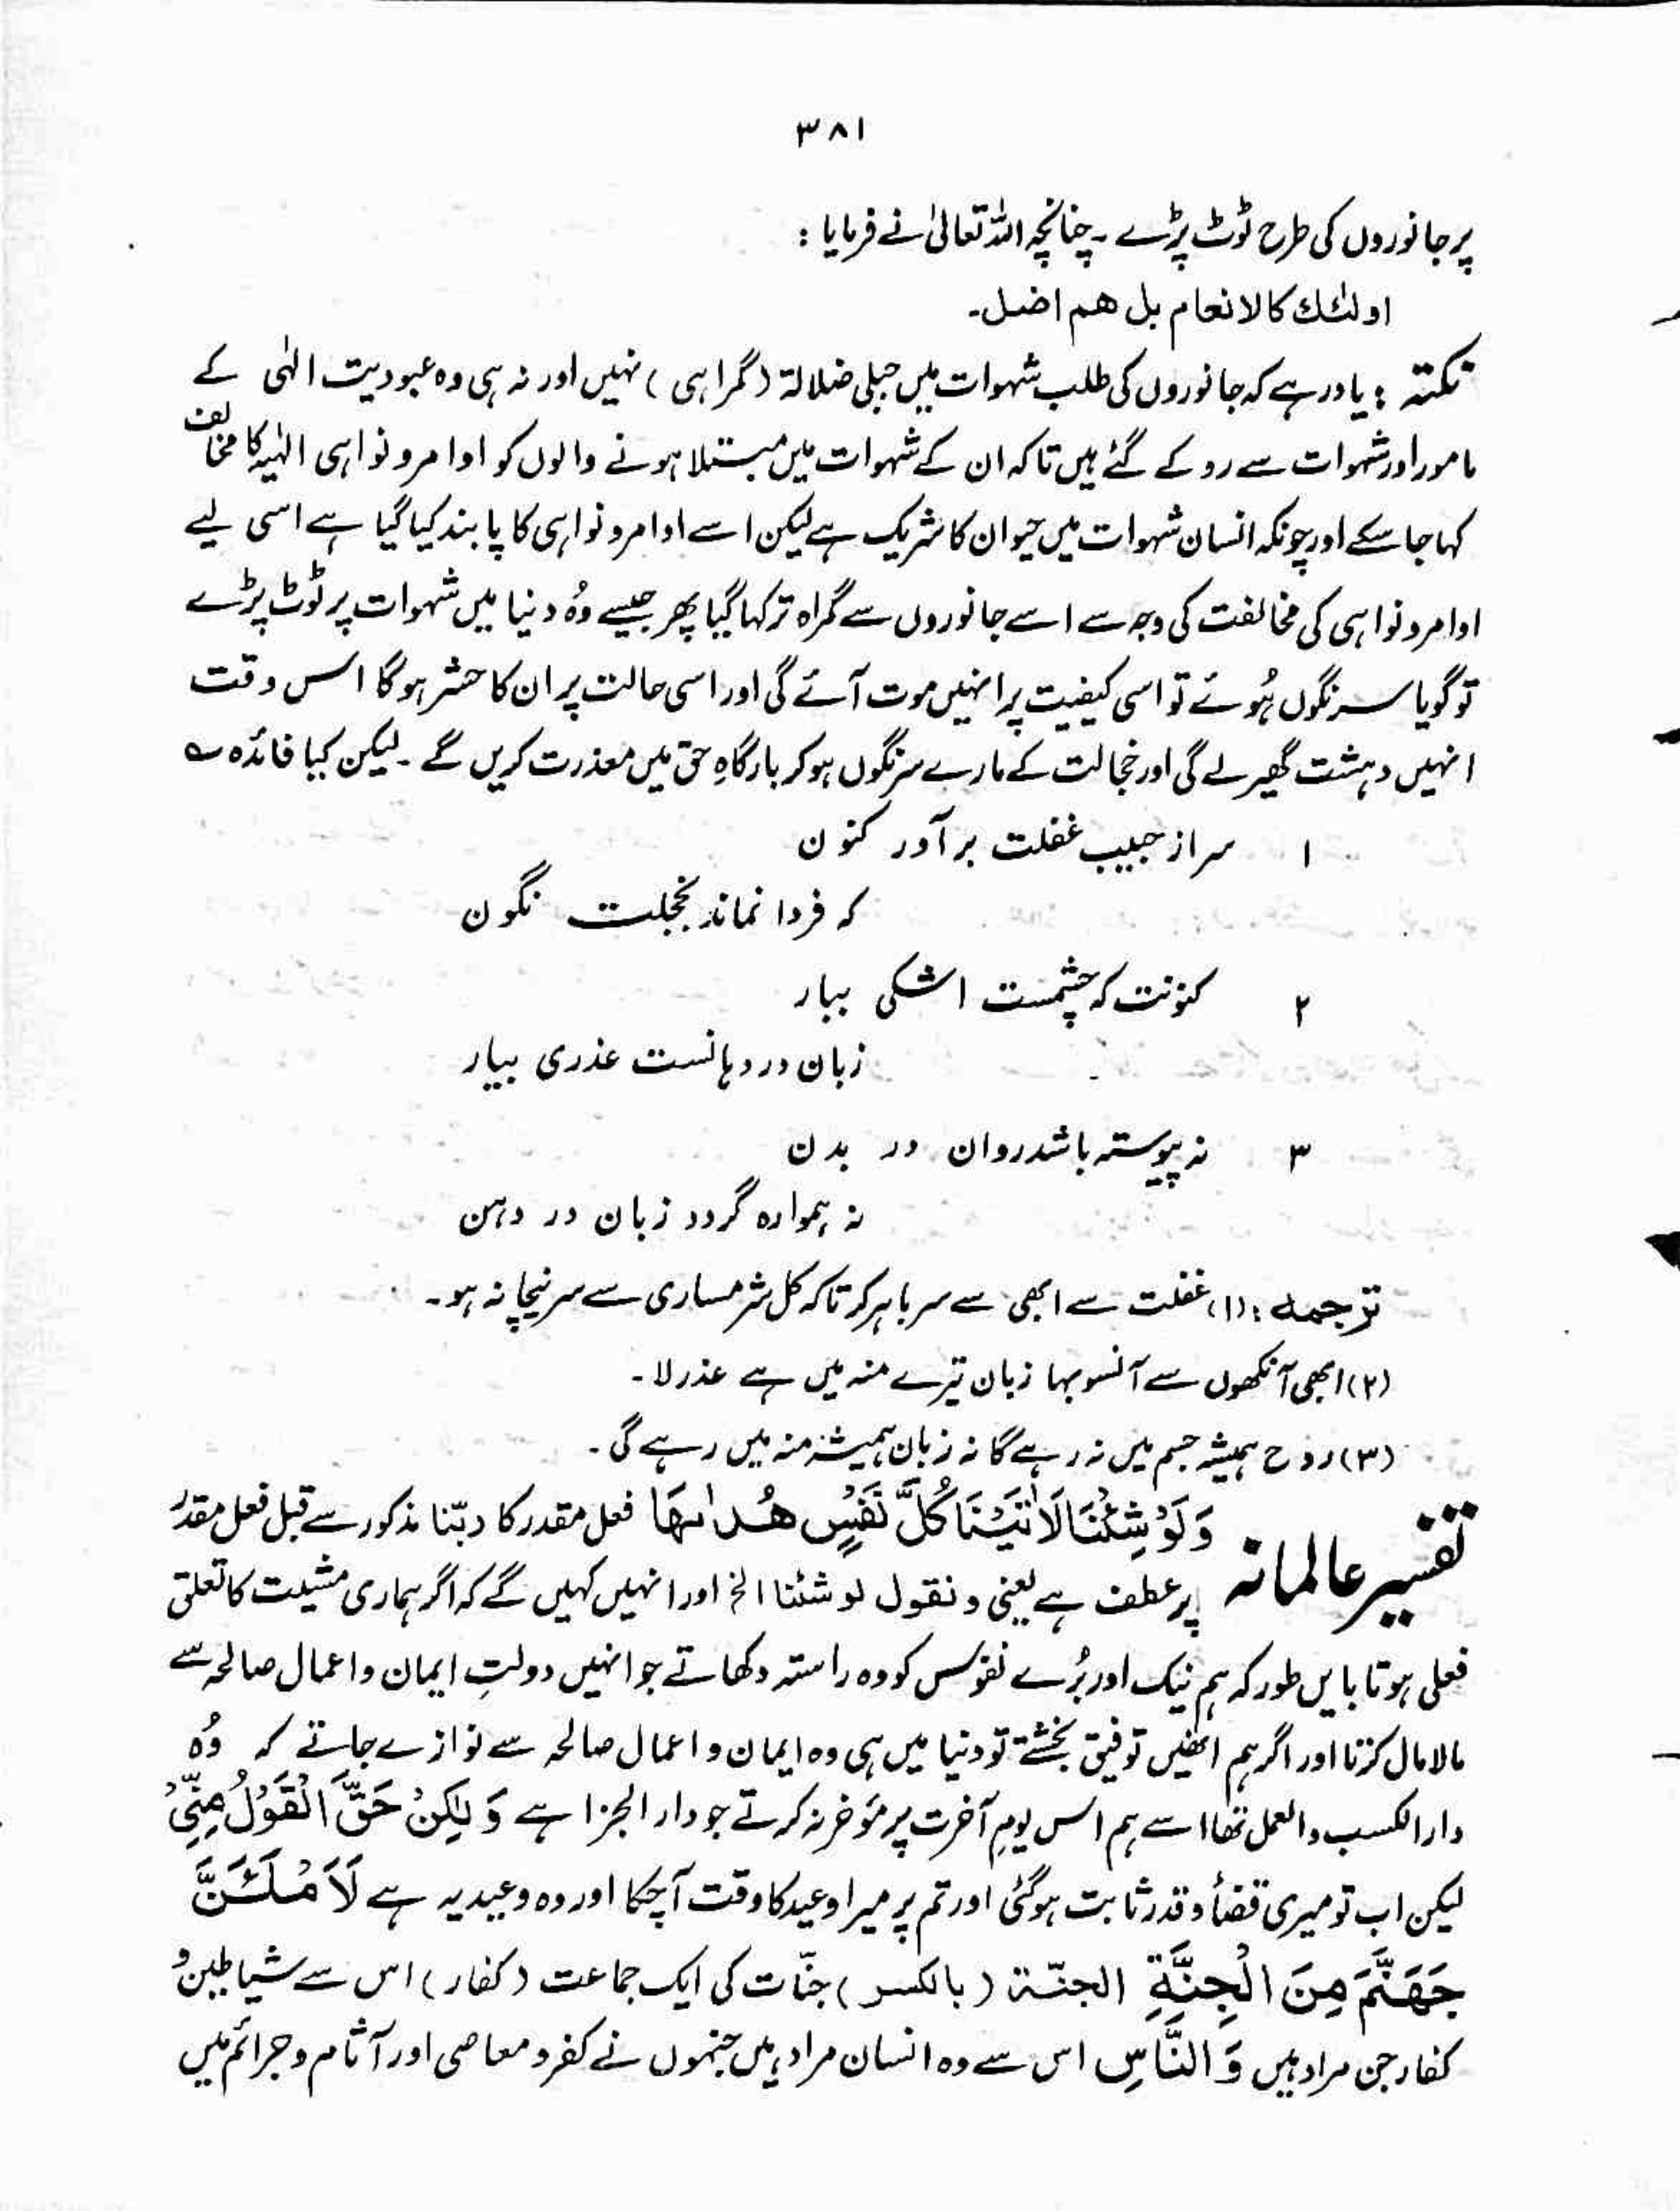 ۳۸۱
پر جانوروں کی طرح ٹوٹ پڑے ۔ چنانچہ اللہ تعالیٰ نے فرمایا :
اولئك كالانعام بل هم اضل۔
نکتہ : یاد رہے کہ جانوروں کی طلب شہوات میں جبلی ضلالۃ (گمراہی) نہیں اور نہ ہی وہ عبودیت الٰہی کے
مامور اور شہوات سے روکے گئے ہیں تاکہ ان کے شہوات میں مبتلا ہونے والوں کو اوامر و نواہی الٰہیہ کا مخالف
کہا جا سکے اور چونکہ انسان شہوات میں حیوان کا شریک ہے لیکن اسے اوامر و نواہی کا پابند کیا گیا ہے اسی لیے
اوامر و نواہی کی مخالفت کی وجہ سے اسے جانوروں سے گمراہ تر کہا گیا پھر جیسے وُہ دنیا میں شہوات پر ٹوٹ پڑے
تو گویا سرنگوں ہُوئے تو اسی کیفیت پر انہیں موت آئے گی اور اسی حالت پر ان کا حشر ہوگا اس وقت
انہیں دہشت گھیر لے گی اور خجالت کے مارے سرنگوں ہو کر بارگاہِ حق میں معذرت کریں گے ۔ لیکن کیا فائدہ ؎
۱ سر از جیب غفلت برآور کنون
کہ فردا نماند بخجلت نگون
۲ کنونت کہ چشمست اشکی ببار
زبان در دہانست عذری بیار
۳ نہ پیوستہ باشد روان در بدن
نہ ہموارہ گردد زبان در دہن
ترجمہ : (۱) غفلت سے ابھی سے سر باہر کر تاکہ کل شرمساری سے سر نیچا نہ ہو ۔
(۲) ابھی آنکھوں سے آنسو بہا زبان تیرے منہ میں ہے عذر لا ۔
(۳) روح ہمیشہ جسم میں نہ رہے گا نہ زبان ہمیشہ منہ میں رہے گی ۔
تفسیر عالمانہ وَلَوْ شِئْنَا لَاٰتَيْنَا كُلَّ نَفْسٍ هُدٰىهَا فعل مقدر کا ربّنا مذکور سے قبل فعل مقدر
پر عطف ہے یعنی ونقول لو شئنا الخ اور انہیں کہیں گے کہ اگر ہماری مشیت کا تعلق
فعلی ہوتا بایں طور کہ ہم نیک اور بُرے نفوس کو وہ راستہ دکھاتے جو انہیں دولتِ ایمان و اعمال صالحہ سے
مالامال کرتا اور اگر ہم انھیں توفیق بخشتے تو دنیا میں ہی وہ ایمان و اعمال صالحہ سے نوازے جاتے کہ وُہ
دار الکسب والعمل تھا اسے ہم اس یومِ آخرت پر مؤخر نہ کرتے جو دار الجزا ہے وَلٰكِنْ حَقَّ الْقَوْلُ مِنِّيْ
لیکن اب تو میری قضأ و قدر ثابت ہو گئی اور تم پر میرا وعید کا وقت آ چکا اور وہ وعید یہ ہے لَاَمْلَئَنَّ
جَهَنَّمَ مِنَ الْجِنَّةِ الجنّۃ (بالکسر) جنّات کی ایک جماعت (کفار) اس سے شیاطین و
کفار جن مراد ہیں وَالنَّاسِ اس سے وہ انسان مراد ہیں جنہوں نے کفر و معاصی اور آثام و جرائم میں